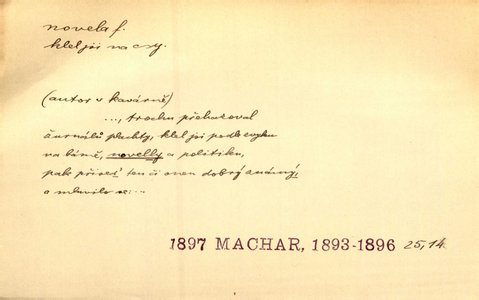 novela f.
klel již na csy.
(autor v kavárně)
..., trochu přehazoval
žurnálů plachty, klel již podle zvyku
na básně, novelly a politiku,
pak přišel ten či onen dobrý známý,
a mluvilo se: ...
1897 MACHAR, 1893-1896 25,14.